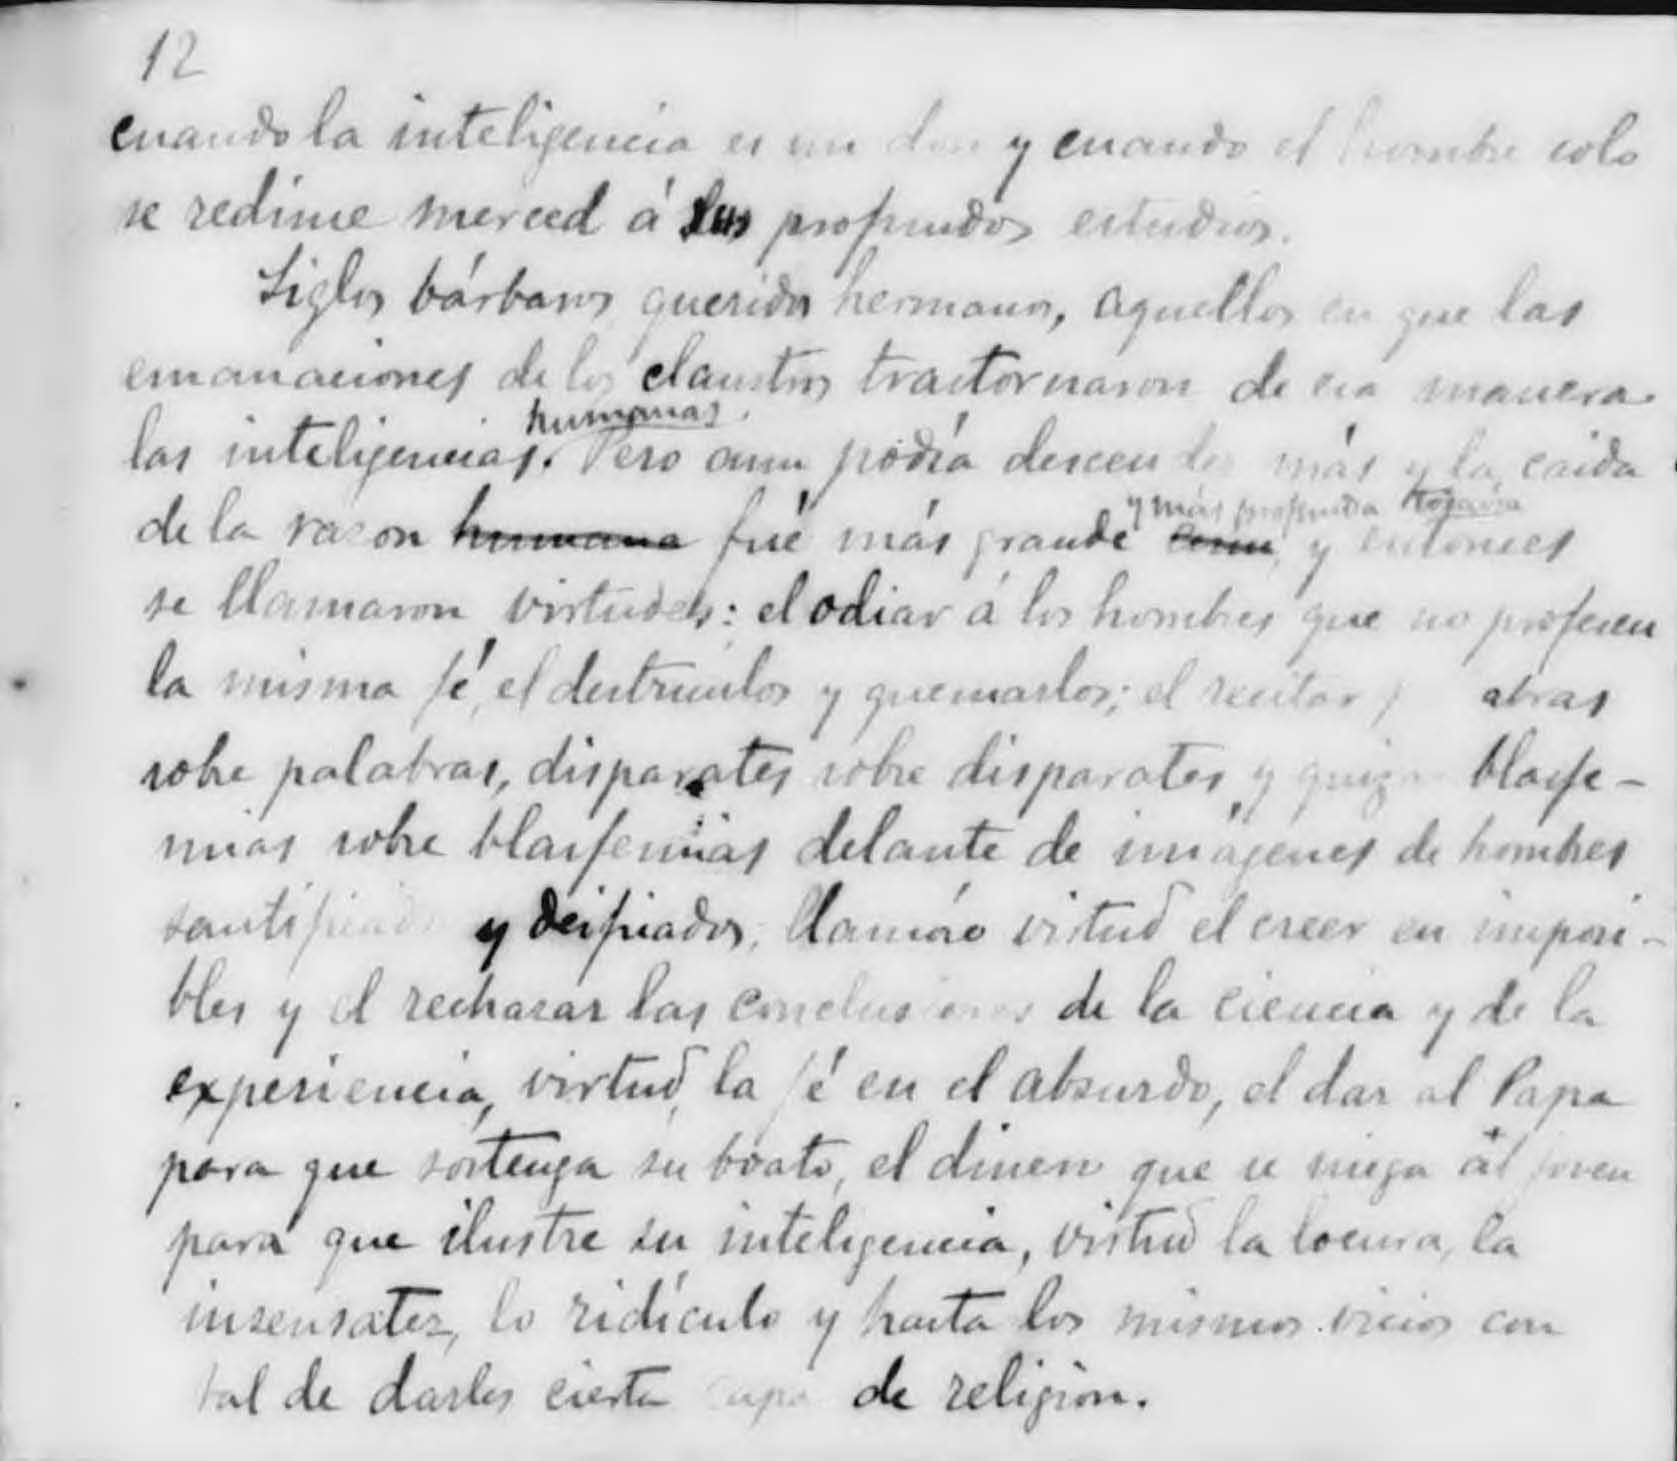 12
cuando la inteligencia es un don y cuando el hombre solo
se redime merced á sus profundos estudios.
Siglos bárbaros, queridos hermanos, aquellos en que las
emanaciones de los claustros trastornaron de esa manera
humanas.
las inteligencias. Pero aun podía descender más y la caida
y más profunda todavía
de la razon humana fué más grande y entonces
se llamaron virtudes: el odiar á los hombres que no profesen
la misma fé, el destruirlos y quemarlos; el recitar abras
sobre palabras, disparates sobre disparates y quizas blasfe-
mias sobre blasfemias delante de imágenes de hombres
santificados y deificados; llamáo virtud el creer en imposi-
bles y el rechasar las conclusiones de la ciencia y de la
experiencia, virtud, la fé en el absurdo, el dar al Papa
para que sostenga su boato, el dinero que se niega al joven
para que ilustre su inteligencia, virtud la locura, la
insensatez, lo ridículo y hasta los mismos vicios con
tal de darles cierta capa de religion.